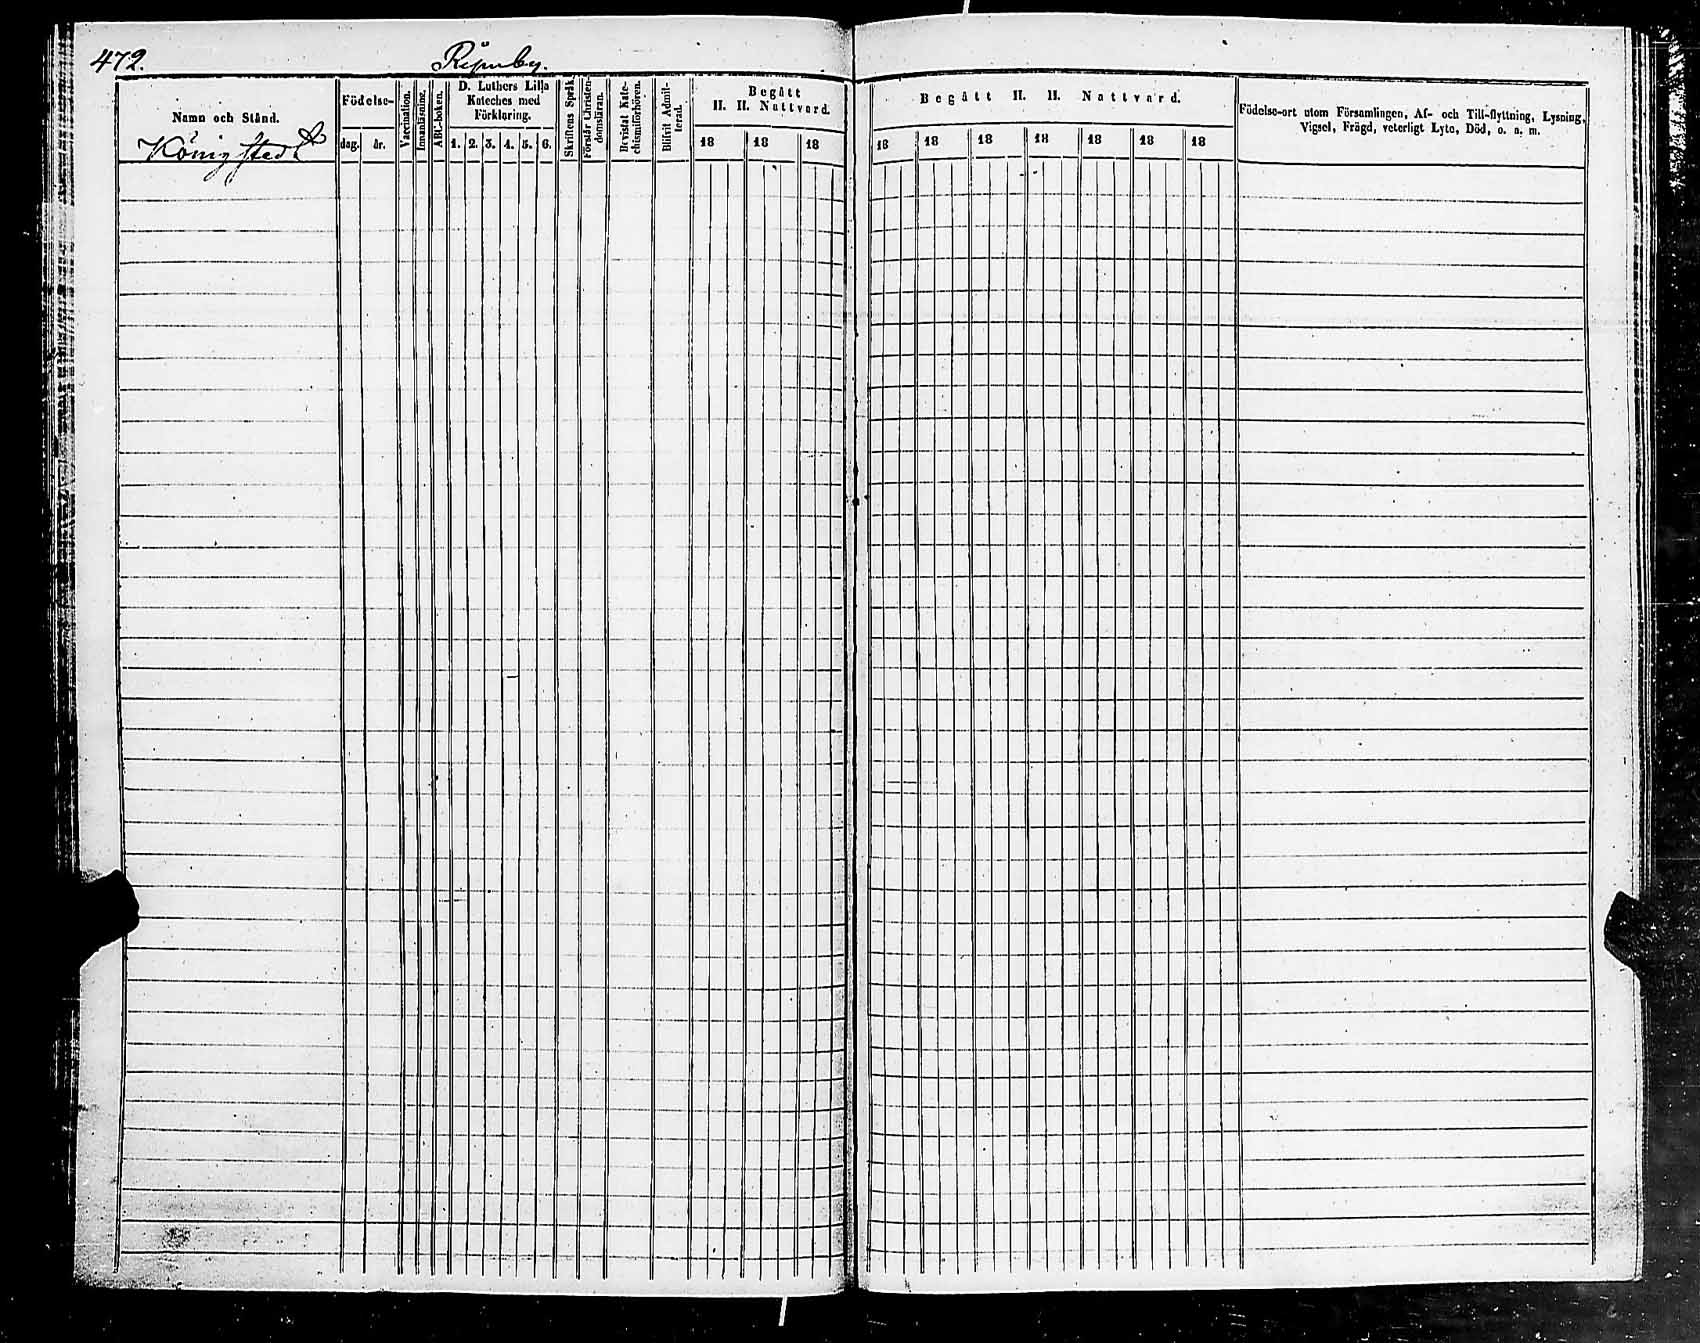 472.
Ripuby.
Namn och Stånd.
Königstedt
Födelse-
dag. år.
Vaccination.
Innanläsning.
ABC-boken.
D. Luthers Lilla
Kateches med
Förklaring.
1. 2. 3. 4. 5. 6.
Skriftens Språk.
Förstår Christen-
domsläran.
Bevistat Kate-
chismiförhören.
Blifvit Admit-
terad.
Begått
H. H. Nattvard.
18 18 18
Begått H. H. Nattvard.
18 18 18 18 18 18 18
Födelse-ort utom Församlingen, Af- och Till-flyttning, Lysning,
Vigsel, Frägd, veterligt Lyte, Död, o. a. m.